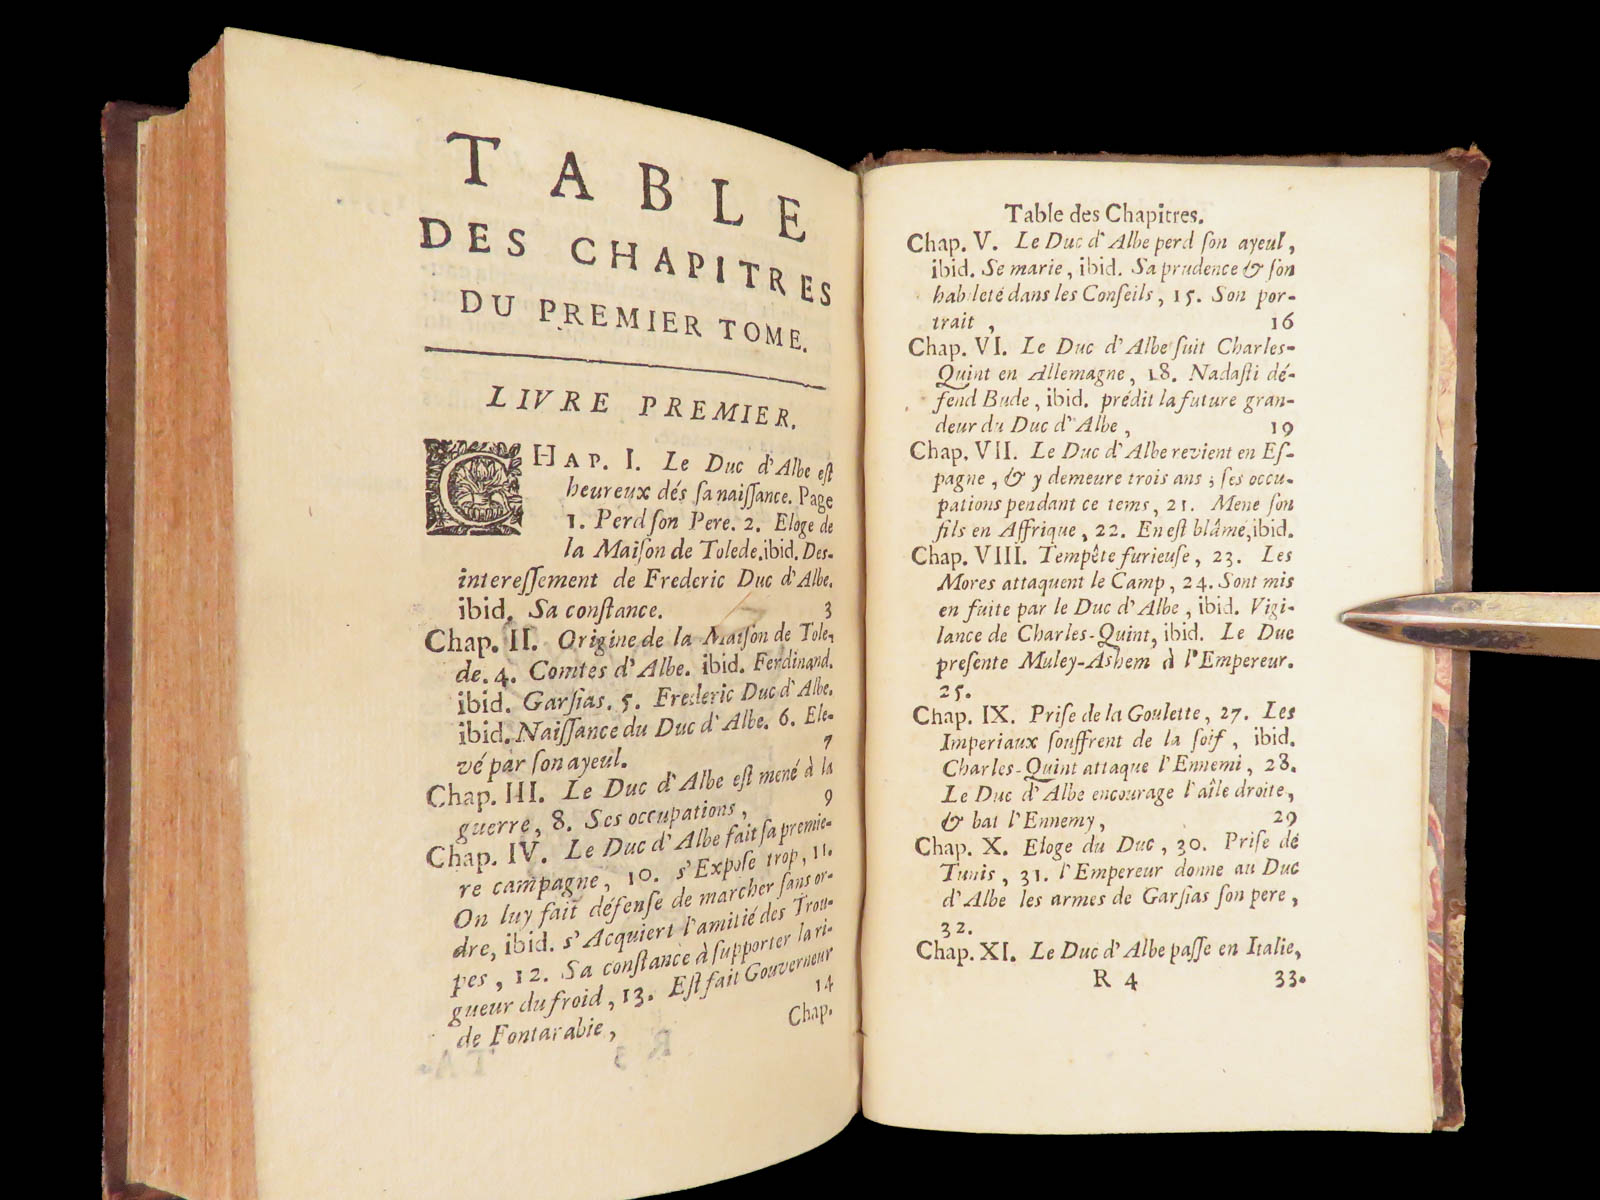 TABLE
DES CHAPITRES
DU PREMIER TOME.
LIVRE PREMIER.
CHAP. I. Le Duc d'Albe eſt
heureux dés ſa naiſſance. Page
1. Perd ſon Pere. 2. Eloge de
la Maiſon de Tolede. ibid. Des-
intereſſement de Frederic Duc d'Albe.
ibid. Sa conſtance. 3
Chap. II. Origine de la Maiſon de Tole-
de. 4. Comtes d'Albe. ibid. Ferdinand.
ibid. Garſias. 5. Frederic Duc d'Albe.
ibid. Naiſſance du Duc d'Albe. 6. Ele-
vé par ſon ayeul. 7
Chap. III. Le Duc d'Albe eſt mené à la
guerre, 8. Ses occupations, 9
Chap. IV. Le Duc d'Albe fait ſa premie-
re campagne, 10. s'Expoſe trop, 11.
On luy fait défenſe de marcher ſans or-
dre, ibid. s'Acquiert l'amitié des Trou-
pes, 12. Sa conſtance à ſupporter la ri-
gueur du froid, 13. Eſt fait Gouverneur
de Fontarabie, 14
Chap.
Table des Chapitres.
Chap. V. Le Duc d'Albe perd ſon ayeul,
ibid. Se marie, ibid. Sa prudence & ſon
habileté dans les Conſeils, 15. Son por-
trait, 16
Chap. VI. Le Duc d'Albe ſuit Charles-
Quint en Allemagne, 18. Nadaſti dé-
fend Bude, ibid. prédit la future gran-
deur du Duc d'Albe, 19
Chap. VII. Le Duc d'Albe revient en Eſ-
pagne, & y demeure trois ans; ſes occu-
pations pendant ce tems, 21. Mene ſon
fils en Affrique, 22. En eſt blâmé, ibid.
Chap. VIII. Tempête furieuſe, 23. Les
Mores attaquent le Camp, 24. Sont mis
en fuite par le Duc d'Albe, ibid. Vigi-
lance de Charles-Quint, ibid. Le Duc
preſente Muley-Ashem à l'Empereur.
25.
Chap. IX. Priſe de la Goulette, 27. Les
Imperiaux ſouffrent de la ſoif, ibid.
Charles-Quint attaque l'Ennemi, 28.
Le Duc d'Albe encourage l'aîle droite,
& bat l'Ennemy, 29
Chap. X. Eloge du Duc, 30. Priſe de
Tunis, 31. l'Empereur donne au Duc
d'Albe les armes de Garſias ſon pere,
32.
Chap. XI. Le Duc d'Albe paſſe en Italie,
R 4 33.